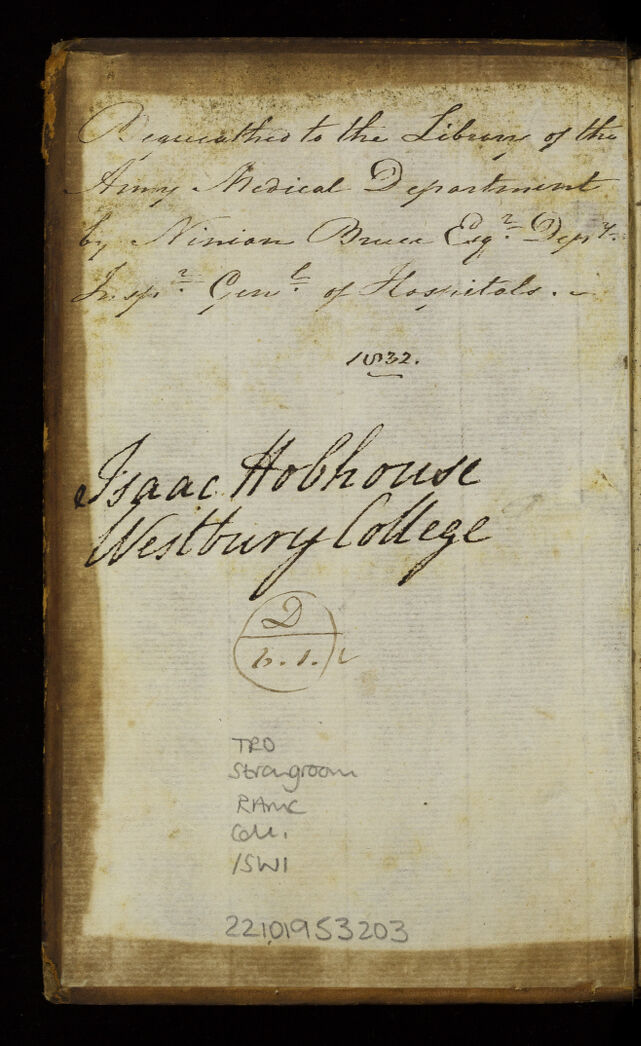 Bequeathed to the Library of the
Army Medical Department
by Ninian Bruce Esqr. Depy.
Inspr. Genl. of Hospitals.
1832.
Isaac Hobhouse
Westbury College
D
6.1.
TRO
Strongroom
RAMC
Coll.
/SWI
22101953203